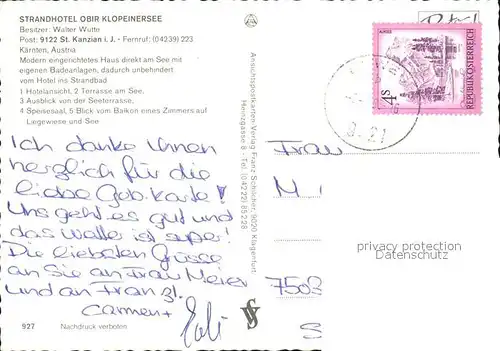 STRANDHOTEL OBIR KLOPEINERSEE
Besitzer: Walter Wutte
Post: 9122 St. Kanzian i. J. - Fernruf: (04239) 223
Kärnten, Austria
Modern eingerichtetes Haus direkt am See mit
eigenen Badeanlagen, dadurch unbehindert
vom Hotel ins Strandbad
1 Hotelansicht, 2 Terrasse am See,
3 Ausblick von der Seeterrasse,
4 Speisesaal, 5 Blick vom Balkon eines Zimmers auf
Liegewiese und See
Ich danke Ihnen
herzlich für die
liebe Geb.karte!
Uns geht es gut und
das Wetter ist super!
Die liebsten Grüsse
an Sie an Frau Meier
und an Franz!
Carmen +
927
Nachdruck verboten
Ansichtspostkarten-Verlag Franz Schilcher, 9020 Klagenfurt,
Heinzgasse 8 - Tel. (04222) 85 2 28
4 S
REPUBLIK ÖSTERREICH
Frau
M
7503
S
privacy protection
Datenschutz